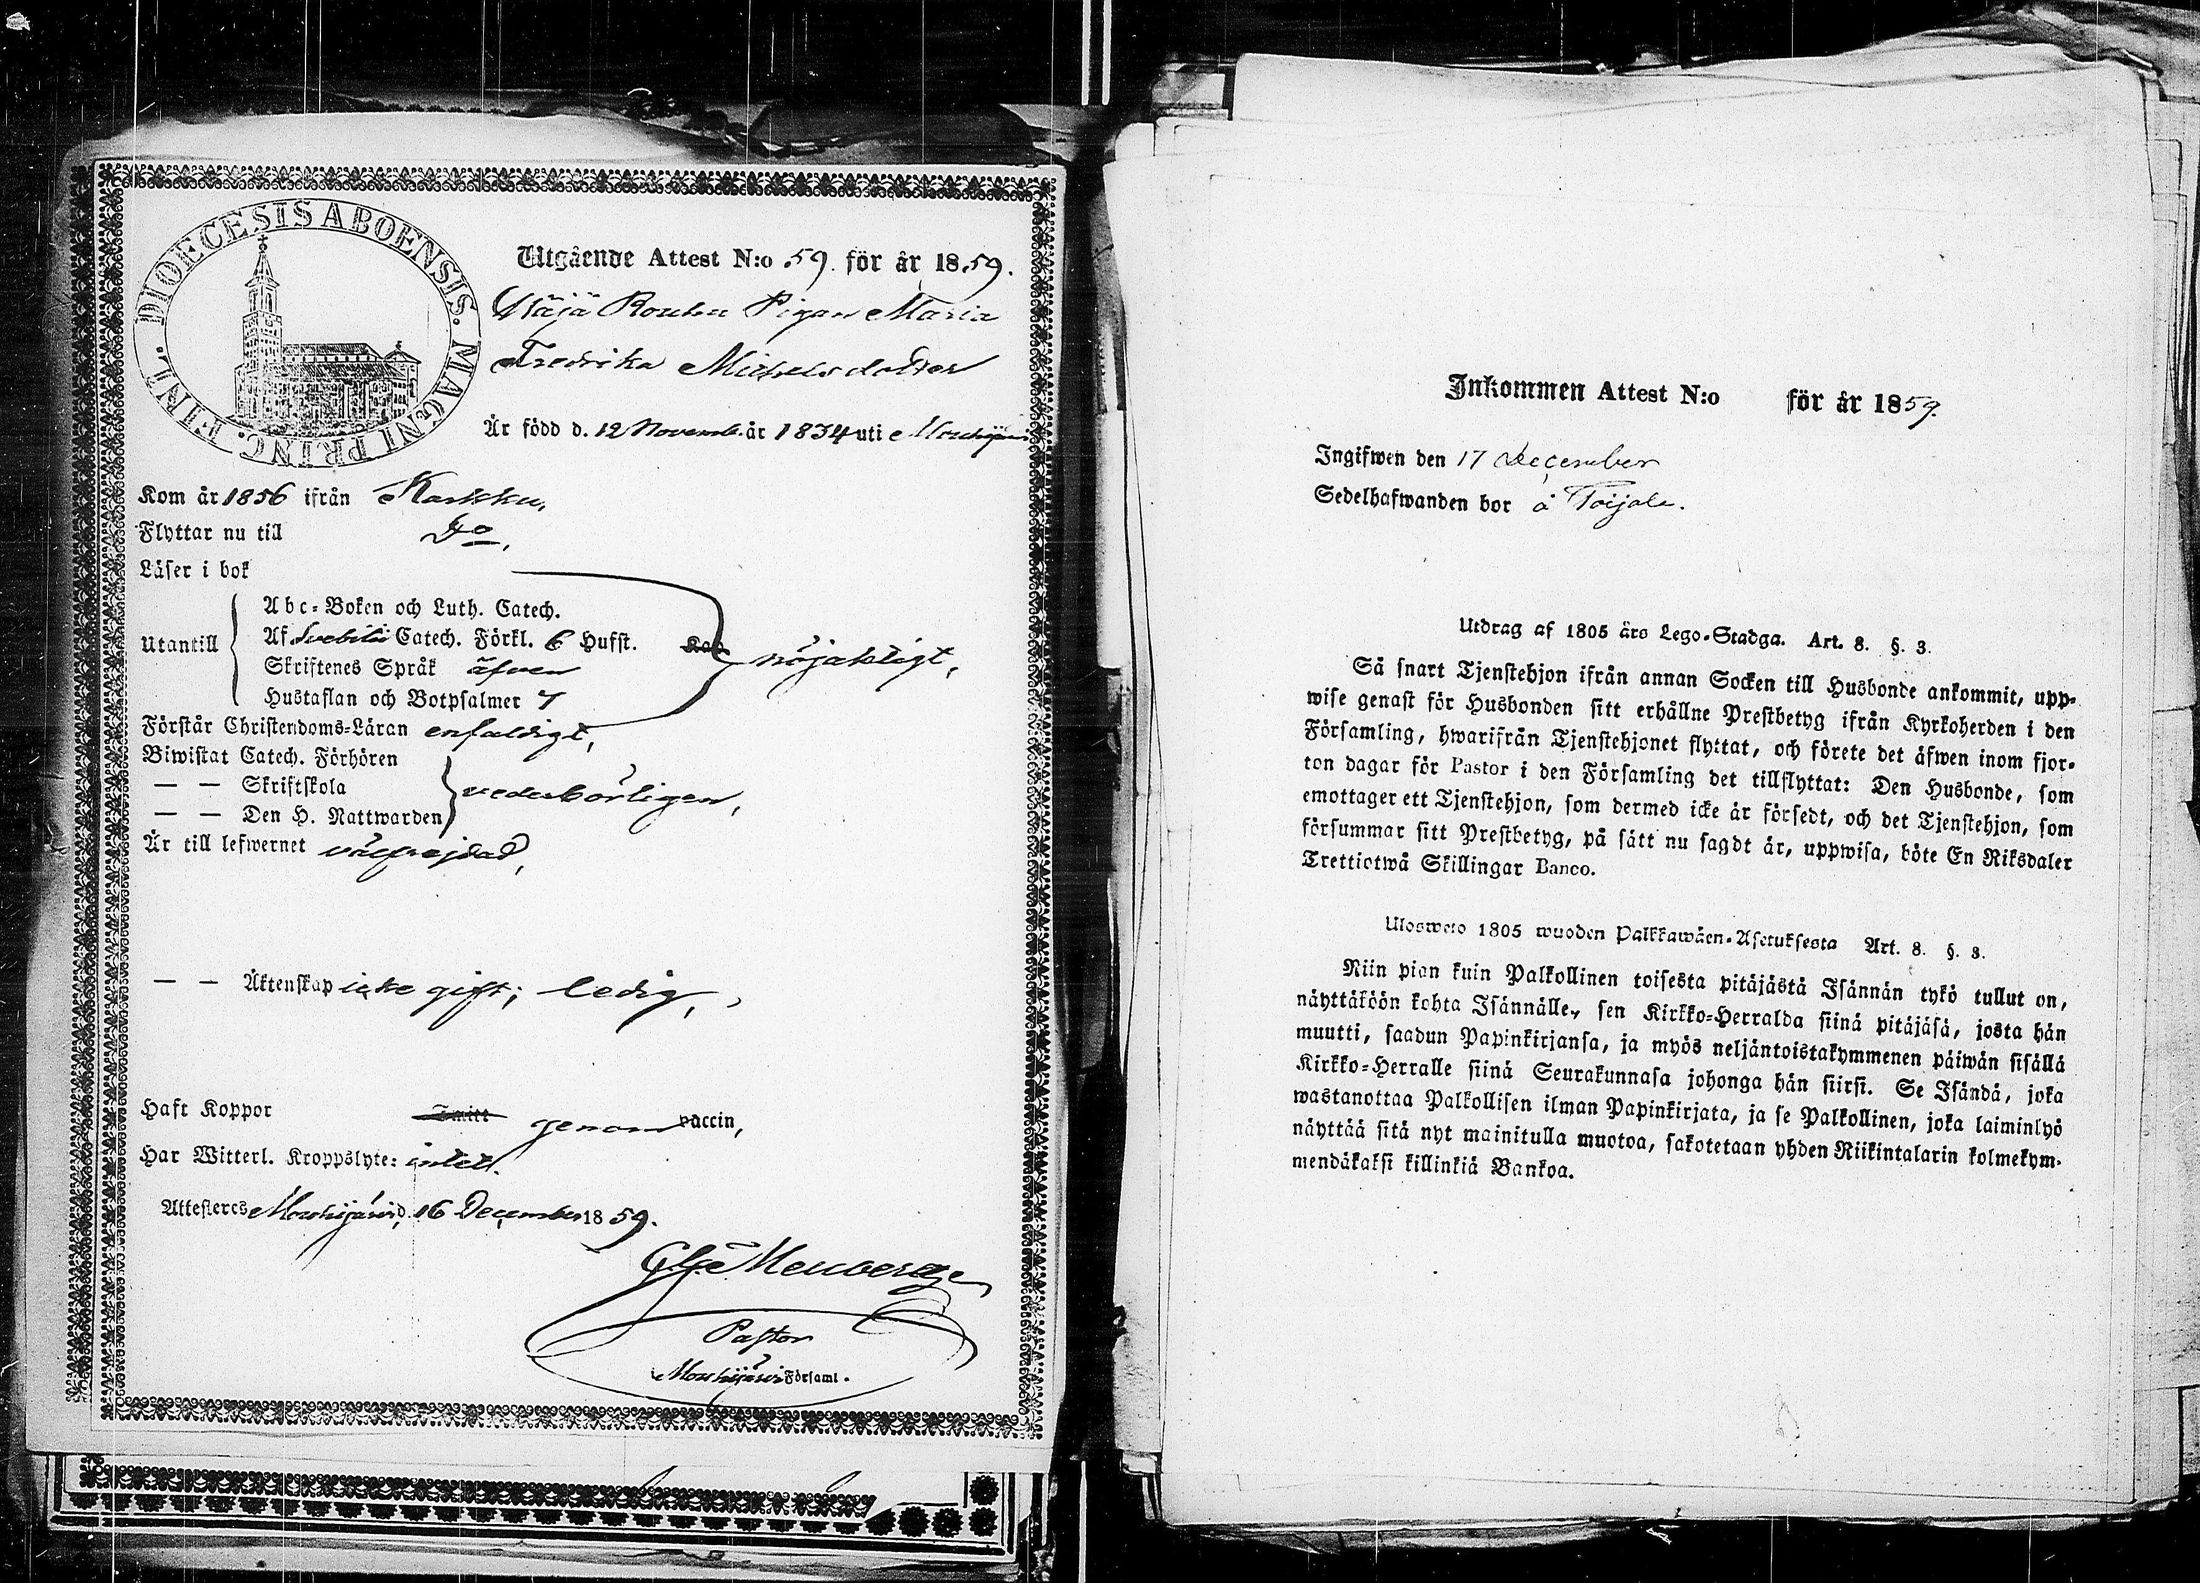 DIOECESIS ABOENSIS. MAGNI PRINC. FINL.
Utgående Attest N:o 59. för år 1859.
Maria
Fredrika Michelsdotter
Är född d. 12 Novemb. år 1834 uti Mouhijärvi
Kom år 1856 ifrån Karkku,
Flyttar nu till Do,
Läser i bok
Utantill
Abc-Boken och Luth. Catech.
Af Svebilii Catech. Förkl. 6 Hufst. Kap
Skriftenes Språk äfven
Hustaflan och Botpsalmer 7
nöjaktigt,
Förstår Christendoms-Läran enfaldigt,
Biwistat Catech. Förhören
— — Skriftskola
— — Den H. Nattwarden
vederbörligen,
Är till lefwernet välfrejdad,
— — Äktenskap icke gift; ledig,
Haft Koppor genom vaccin,
Har Witterl. Kroppslyte: intet.
Attesteres Mouhijärvi d. 16 December 1859.
Pastor
Mouhijärvi Församl.
Inkommen Attest N:o för år 1859.
Ingifwen den 17 December
Sedelhafwanden bor å Toijala.
Utdrag af 1805 års Lego-Stadga. Art. 8. §. 3.
Så snart Tjenstehjon ifrån annan Socken till Husbonde ankommit, upp-
wise genast för Husbonden sitt erhållne Prestbetyg ifrån Kyrkoherden i den
Församling, hwarifrån Tjenstehjonet flyttat, och förete det äfwen inom fjor-
ton dagar för Pastor i den Församling det tillflyttat: Den Husbonde, som
emottager ett Tjenstehjon, som dermed icke är försedt, och det Tjenstehjon, som
försummar sitt Prestbetyg, på sätt nu sagdt är, uppwisa, böte En Riksdaler
Trettiotwå Skillingar Banco.
Ulosweto 1805 wuoden Palkkawäen-Asetuksesta Art. 8. §. 3.
Niin pian kuin Palkollinen toisesta pitäjästä Isännän tykö tullut on,
näyttäköön kohta Isännälle, sen Kirkko-Herralda siinä pitäjäsä, josta hän
muutti, saadun Papinkirjansa, ja myös neljäntoistakymmenen päiwän sisällä
Kirkko-Herralle siinä Seurakunnasa johonga hän siirsi. Se Isändä, joka
wastanottaa Palkollisen ilman Papinkirjata, ja se Palkollinen, joka laiminlyö
näyttää sitä nyt mainitulla muotoa, sakotetaan yhden Riikintalarin kolmekym-
mendäkaksi killinkiä Bankoa.